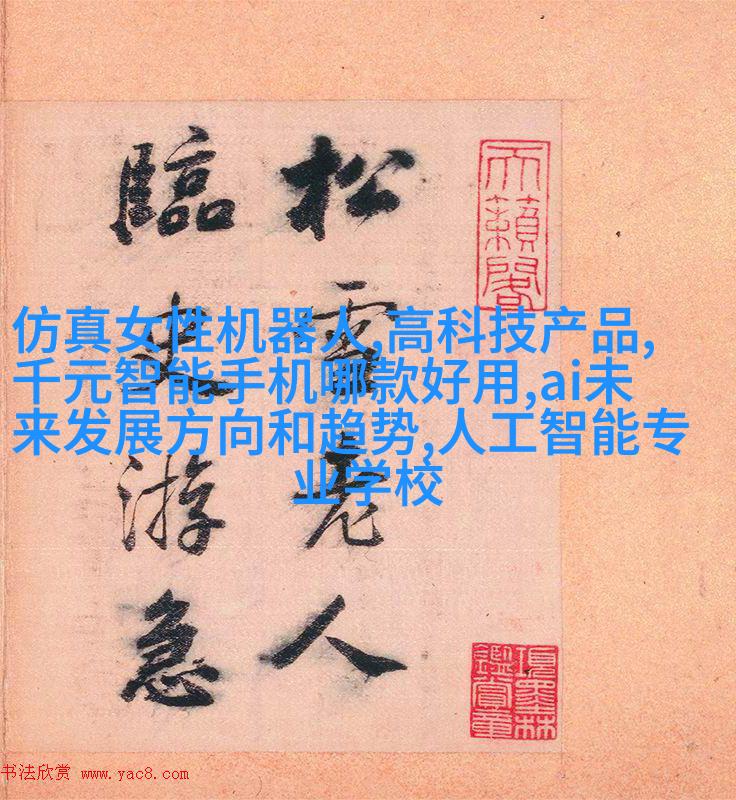 仿真女性机器人,高科技产品,
千元智能手机哪款好用,ai未
来发展方向和趋势,人工智能专
业学校
天籟閣
松雪老人
臨史游急
項墨林
鑑賞章
书法欣赏 www.yac8.com